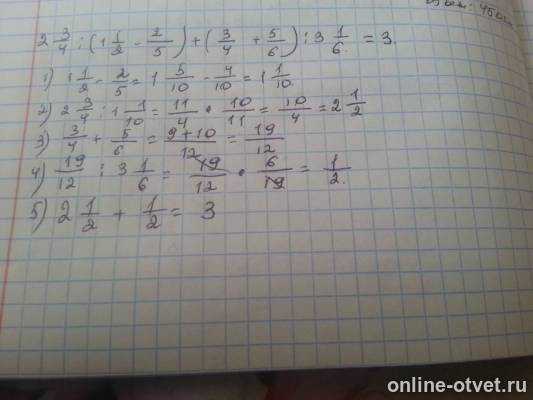 2 3/4 : (1 1/2 - 2/5) + (3/4 + 5/6) : 3 1/6 = 3.
1) 1 1/2 - 2/5 = 1 5/10 - 4/10 = 1 1/10.
2) 2 3/4 : 1 1/10 = 11/4 • 10/11 = 10/4 = 2 1/2
3) 3/4 + 5/6 = 9+10/12 = 19/12
4) 19/12 : 3 1/6 = 19/12 • 6/19 = 1/2.
5) 2 1/2 + 1/2 = 3
online-otvet.ru